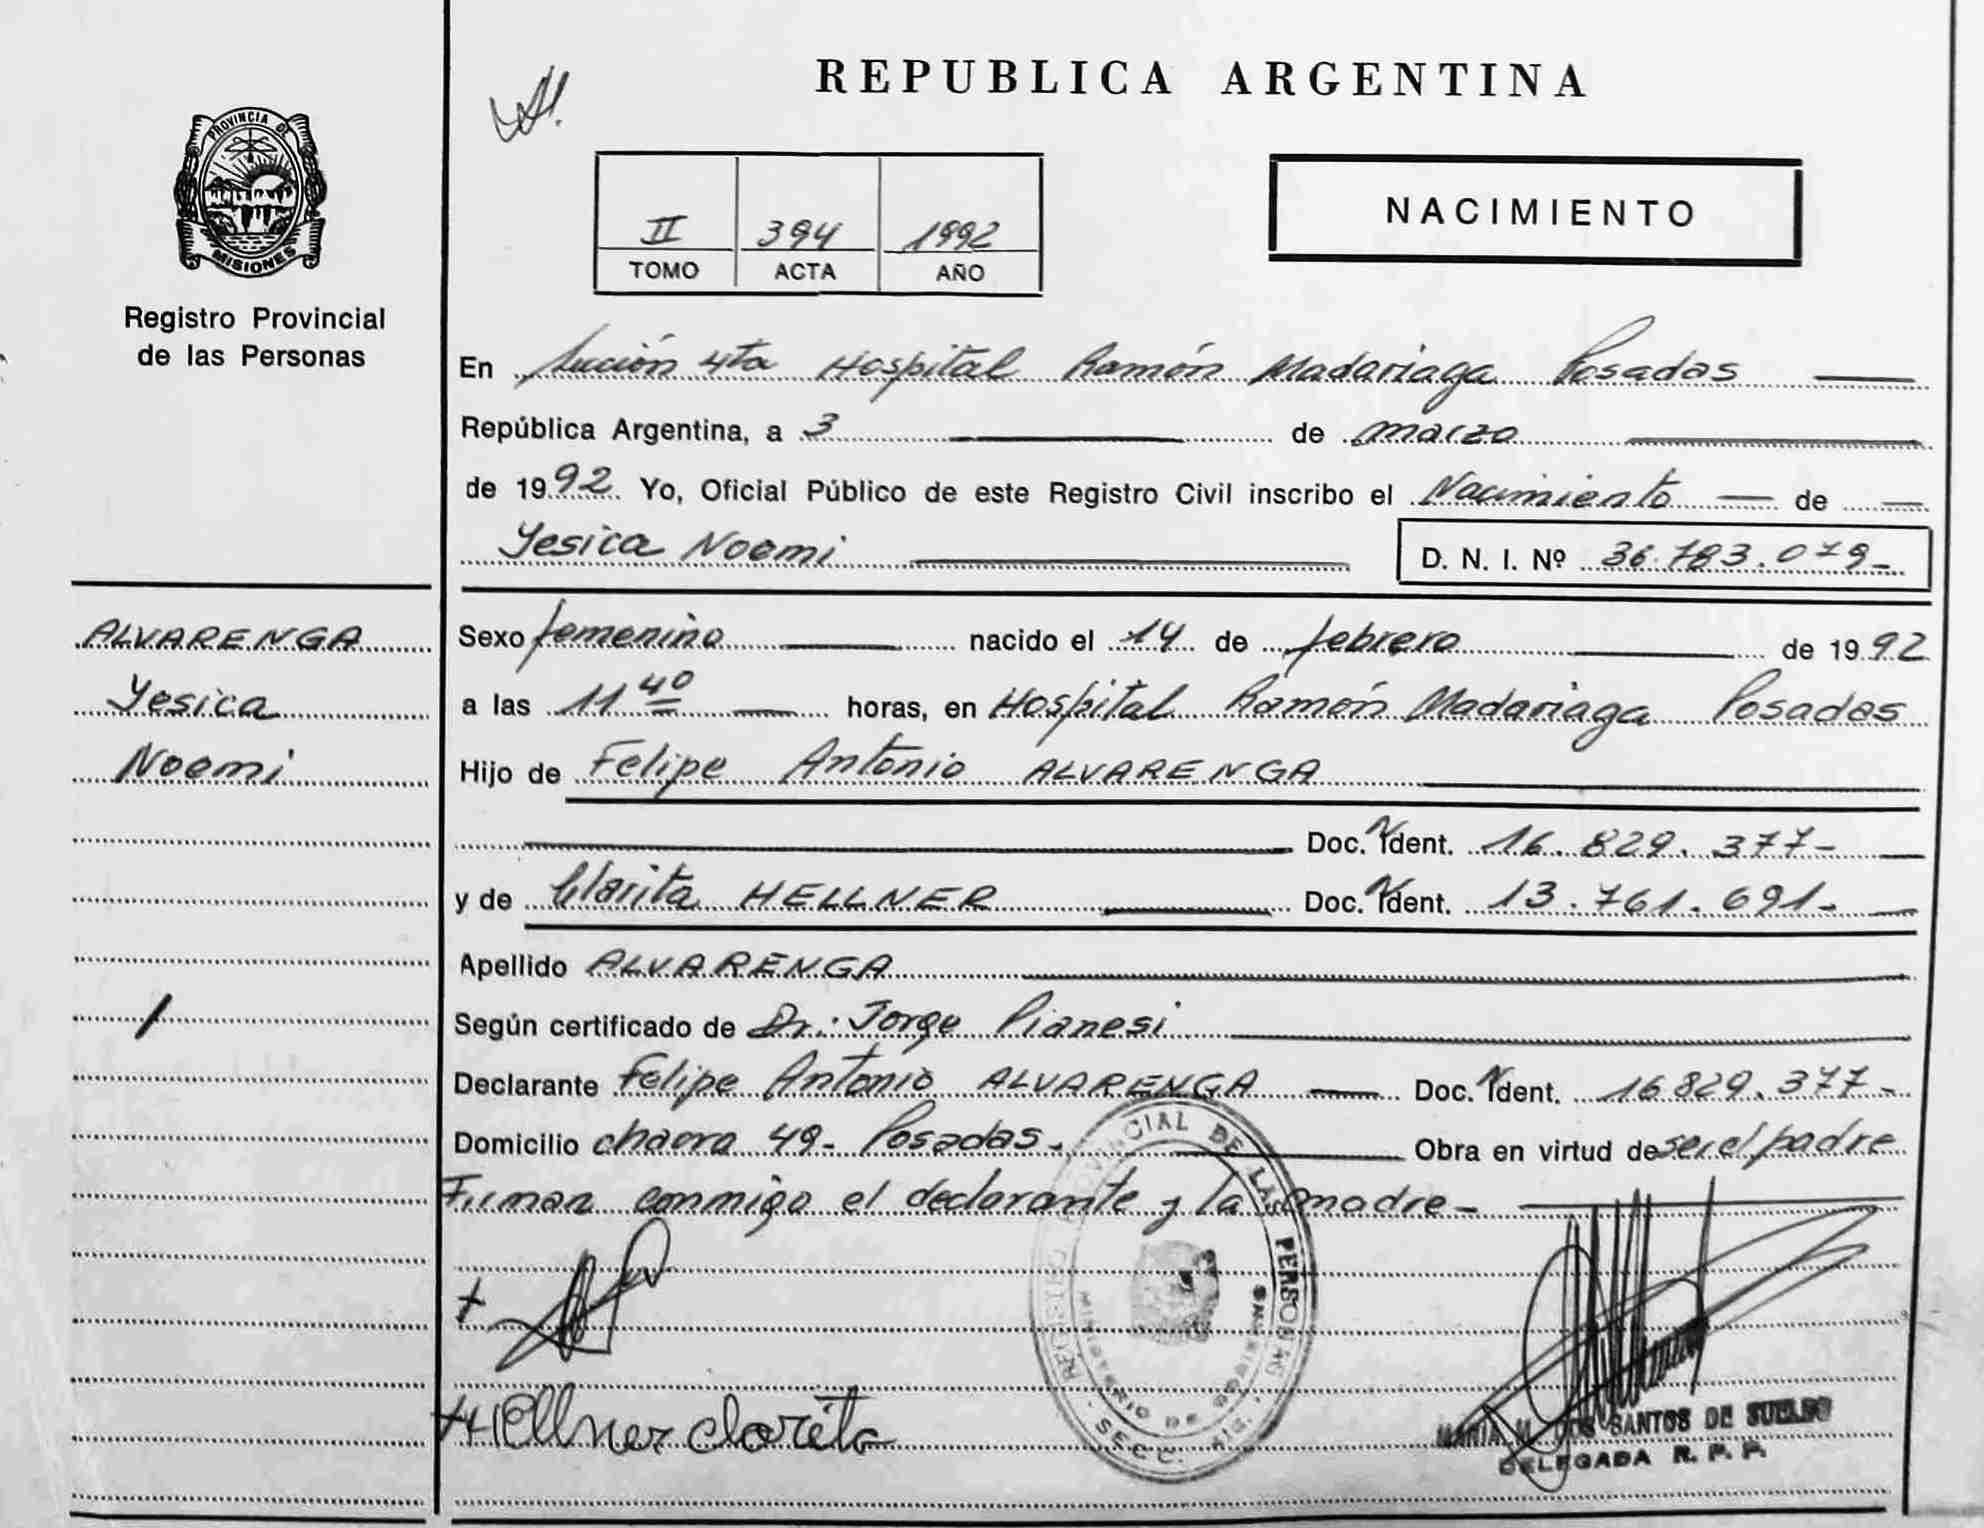 REPUBLICA ARGENTINA
PROVINCIA DE
MISIONES
Registro Provincial
de las Personas
II 394 1992
TOMO ACTA AÑO
NACIMIENTO
En Sección 4ta Hospital Ramón Madariaga Posadas
República Argentina, a 3 de marzo
de 1992 Yo, Oficial Público de este Registro Civil inscribo el Nacimiento de
Yesica Noemi D. N. I. Nº 36.783.079-
ALVARENGA
Yesica
Noemi
Sexo femenino nacido el 14 de febrero de 1992
a las 11 40 horas, en Hospital Ramón Madariaga Posadas
Hijo de Felipe Antonio ALVARENGA
Doc. Ident. 16.829.377-
y de Clarita HELLNER Doc. Ident. 13.761.691-
Apellido ALVARENGA
Según certificado de Dr. Jorge Pianesi
Declarante Felipe Antonio ALVARENGA Doc. Ident. 16829.377-
Domicilio chacra 49- Posadas. Obra en virtud de ser el padre
Firman conmigo el declarante y la madre-
Hellner clarita
REGISTRO PROVINCIAL DE LAS PERSONAS
SECC.
MINISTERIO DE GOBIERNO
MARIA M. DOS SANTOS DE SUELDO
DELEGADA R. P. P.